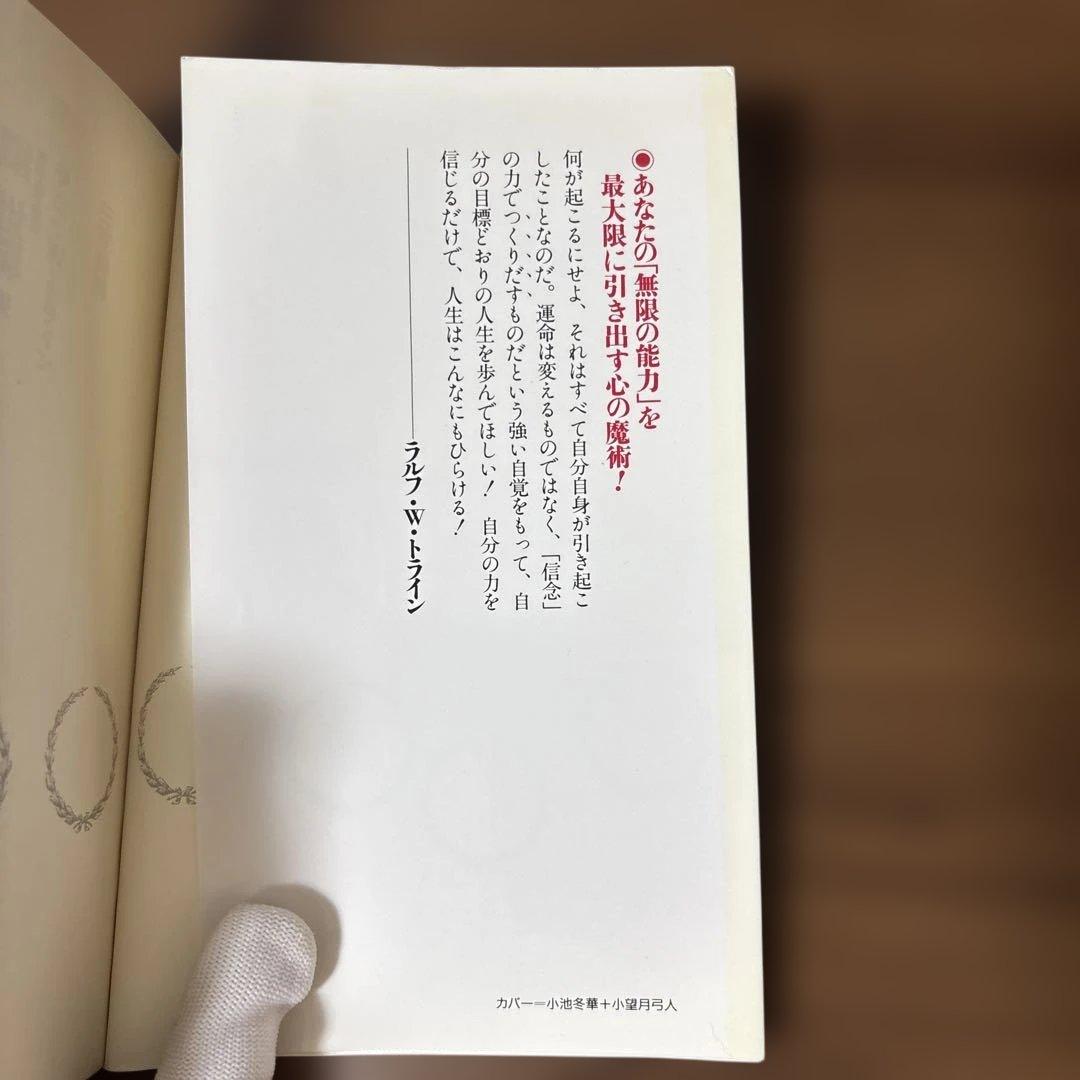 ◉あなたの「無限の能力」を
最大限に引き出す心の魔術！
何が起こるにせよ、それはすべて自分自身が引き起こ
したことなのだ。運命は変えるものではなく、「信念」
の力でつくりだすものだという強い自覚をもって、自
分の目標どおりの人生を歩んでほしい！　自分の力を
信じるだけで、人生はこんなにもひらける！
――ラルフ・W・トライン
カバー＝小池冬華＋小望月弓人